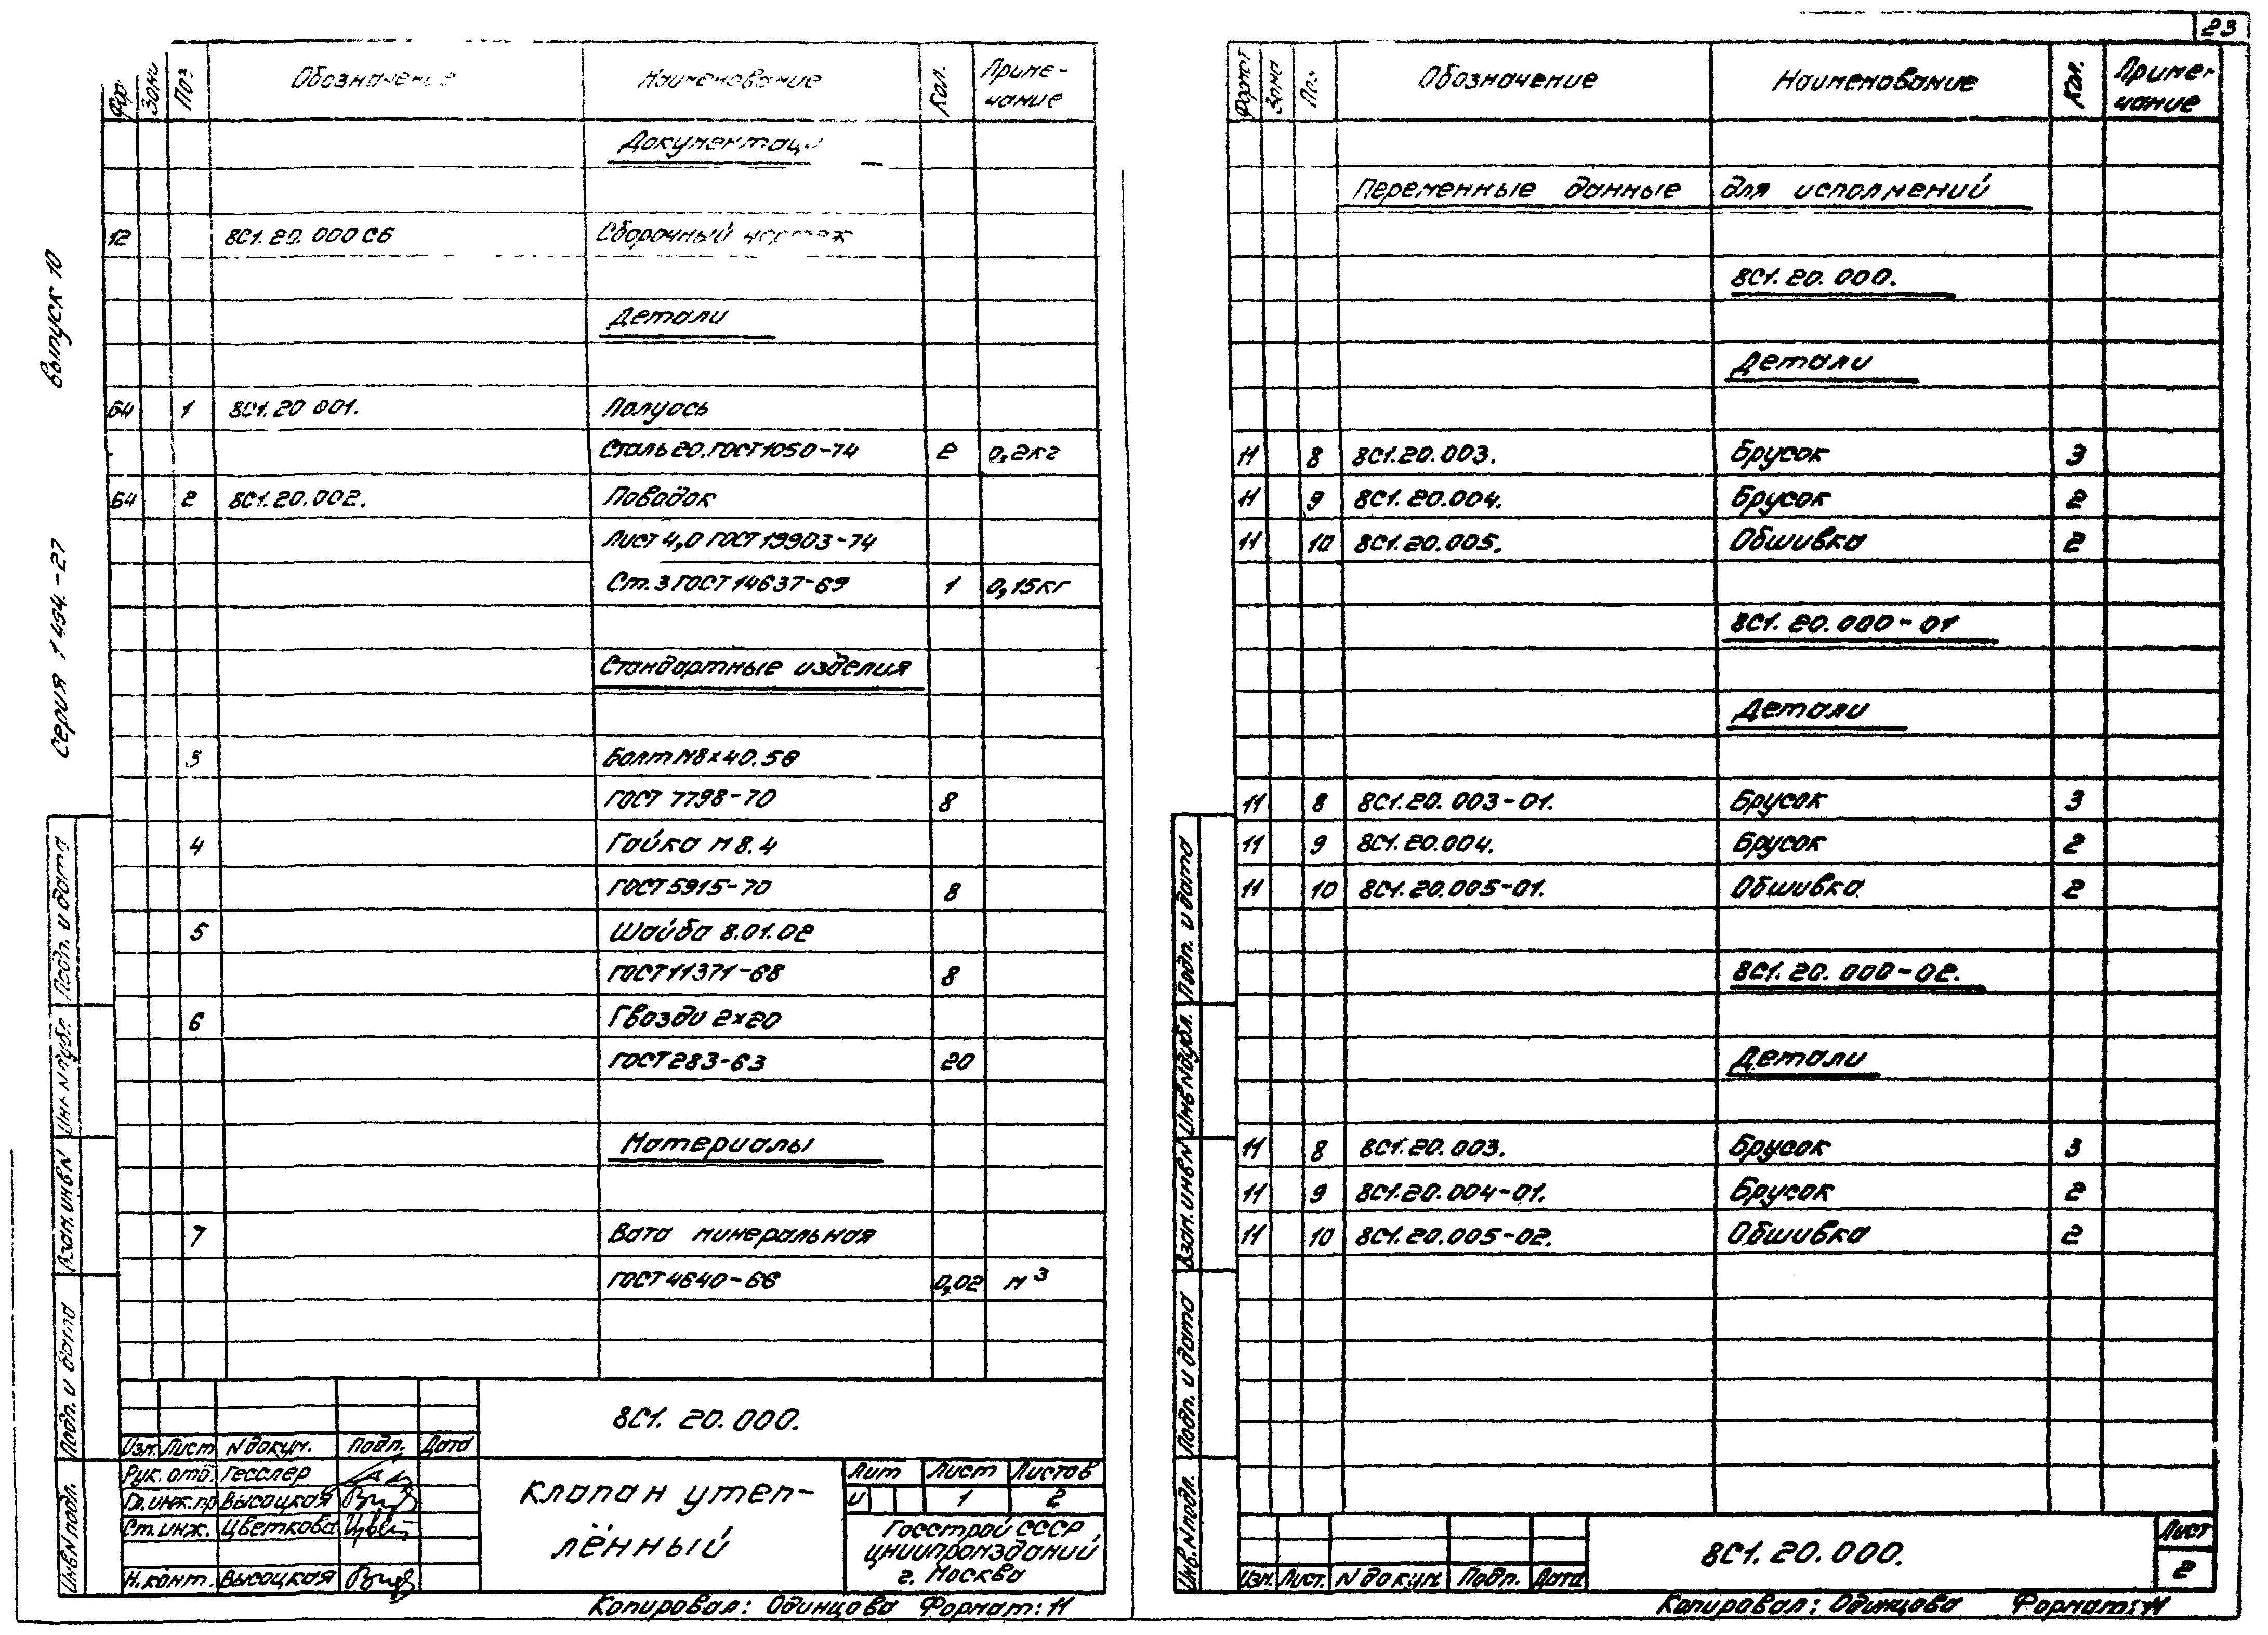 23
Выпуск 10
Серия 1494-27
Фор. Зона Поз Обозначение Наименование Кол. Приме-
чание
Документаци
12 8С1.20.000СБ Сборочный чертеж
Детали
БЧ 1 8С1.20 001. Полуось
Сталь 20.ГОСТ1050-74 2 0,2кг
БЧ 2 8С1.20.002. Поводок
Лист 4,0 ГОСТ19903-74
Ст.3 ГОСТ14637-69 1 0,15кг
Стандартные изделия
3 Болт М8х40.58
ГОСТ 7798-70 8
4 Гайка М8.4
ГОСТ5915-70 8
5 Шайба 8.01.02
ГОСТ11371-68 8
6 Гвозди 2х20
ГОСТ283-63 20
Материалы
7 Вата минеральная
ГОСТ4640-66 0,02 м³
8С1.20.000.
Изм. Лист N докум. Подп. Дата
Рук.отд. Гесслер
Гл.инж.пр Высоцкая
Ст.инж. Цветкова
Н.конт. Высоцкая
Клапан утеп-
лённый
Лит Лист Листов
И 1 2
Госстрой СССР
ЦНИИпромзданий
г. Москва
Копировал: Одинцова Формат: 11
Подп. и дата
Инв N дубл.
Взам.инв N
Подп. и дата
Инв N подл.
Формат Зона Поз Обозначение Наименование Кол. Приме-
чание
Переменные данные для исполнений
8С1.20.000.
Детали
11 8 8С1.20.003. Брусок 3
11 9 8С1.20.004. Брусок 2
11 10 8С1.20.005. Обшивка 2
8С1.20.000-01
Детали
11 8 8С1.20.003-01. Брусок 3
11 9 8С1.20.004. Брусок 2
11 10 8С1.20.005-01. Обшивка 2
8С1.20.000-02.
Детали
11 8 8С1.20.003. Брусок 3
11 9 8С1.20.004-01. Брусок 2
11 10 8С1.20.005-02. Обшивка 2
8С1.20.000.
Лист
2
Изм. Лист. N докум. Подп. Дата
Копировал: Одинцова Формат: 11
Подп. и дата
Инв N дубл.
Взам.инв N
Подп. и дата
Инв. N подл.